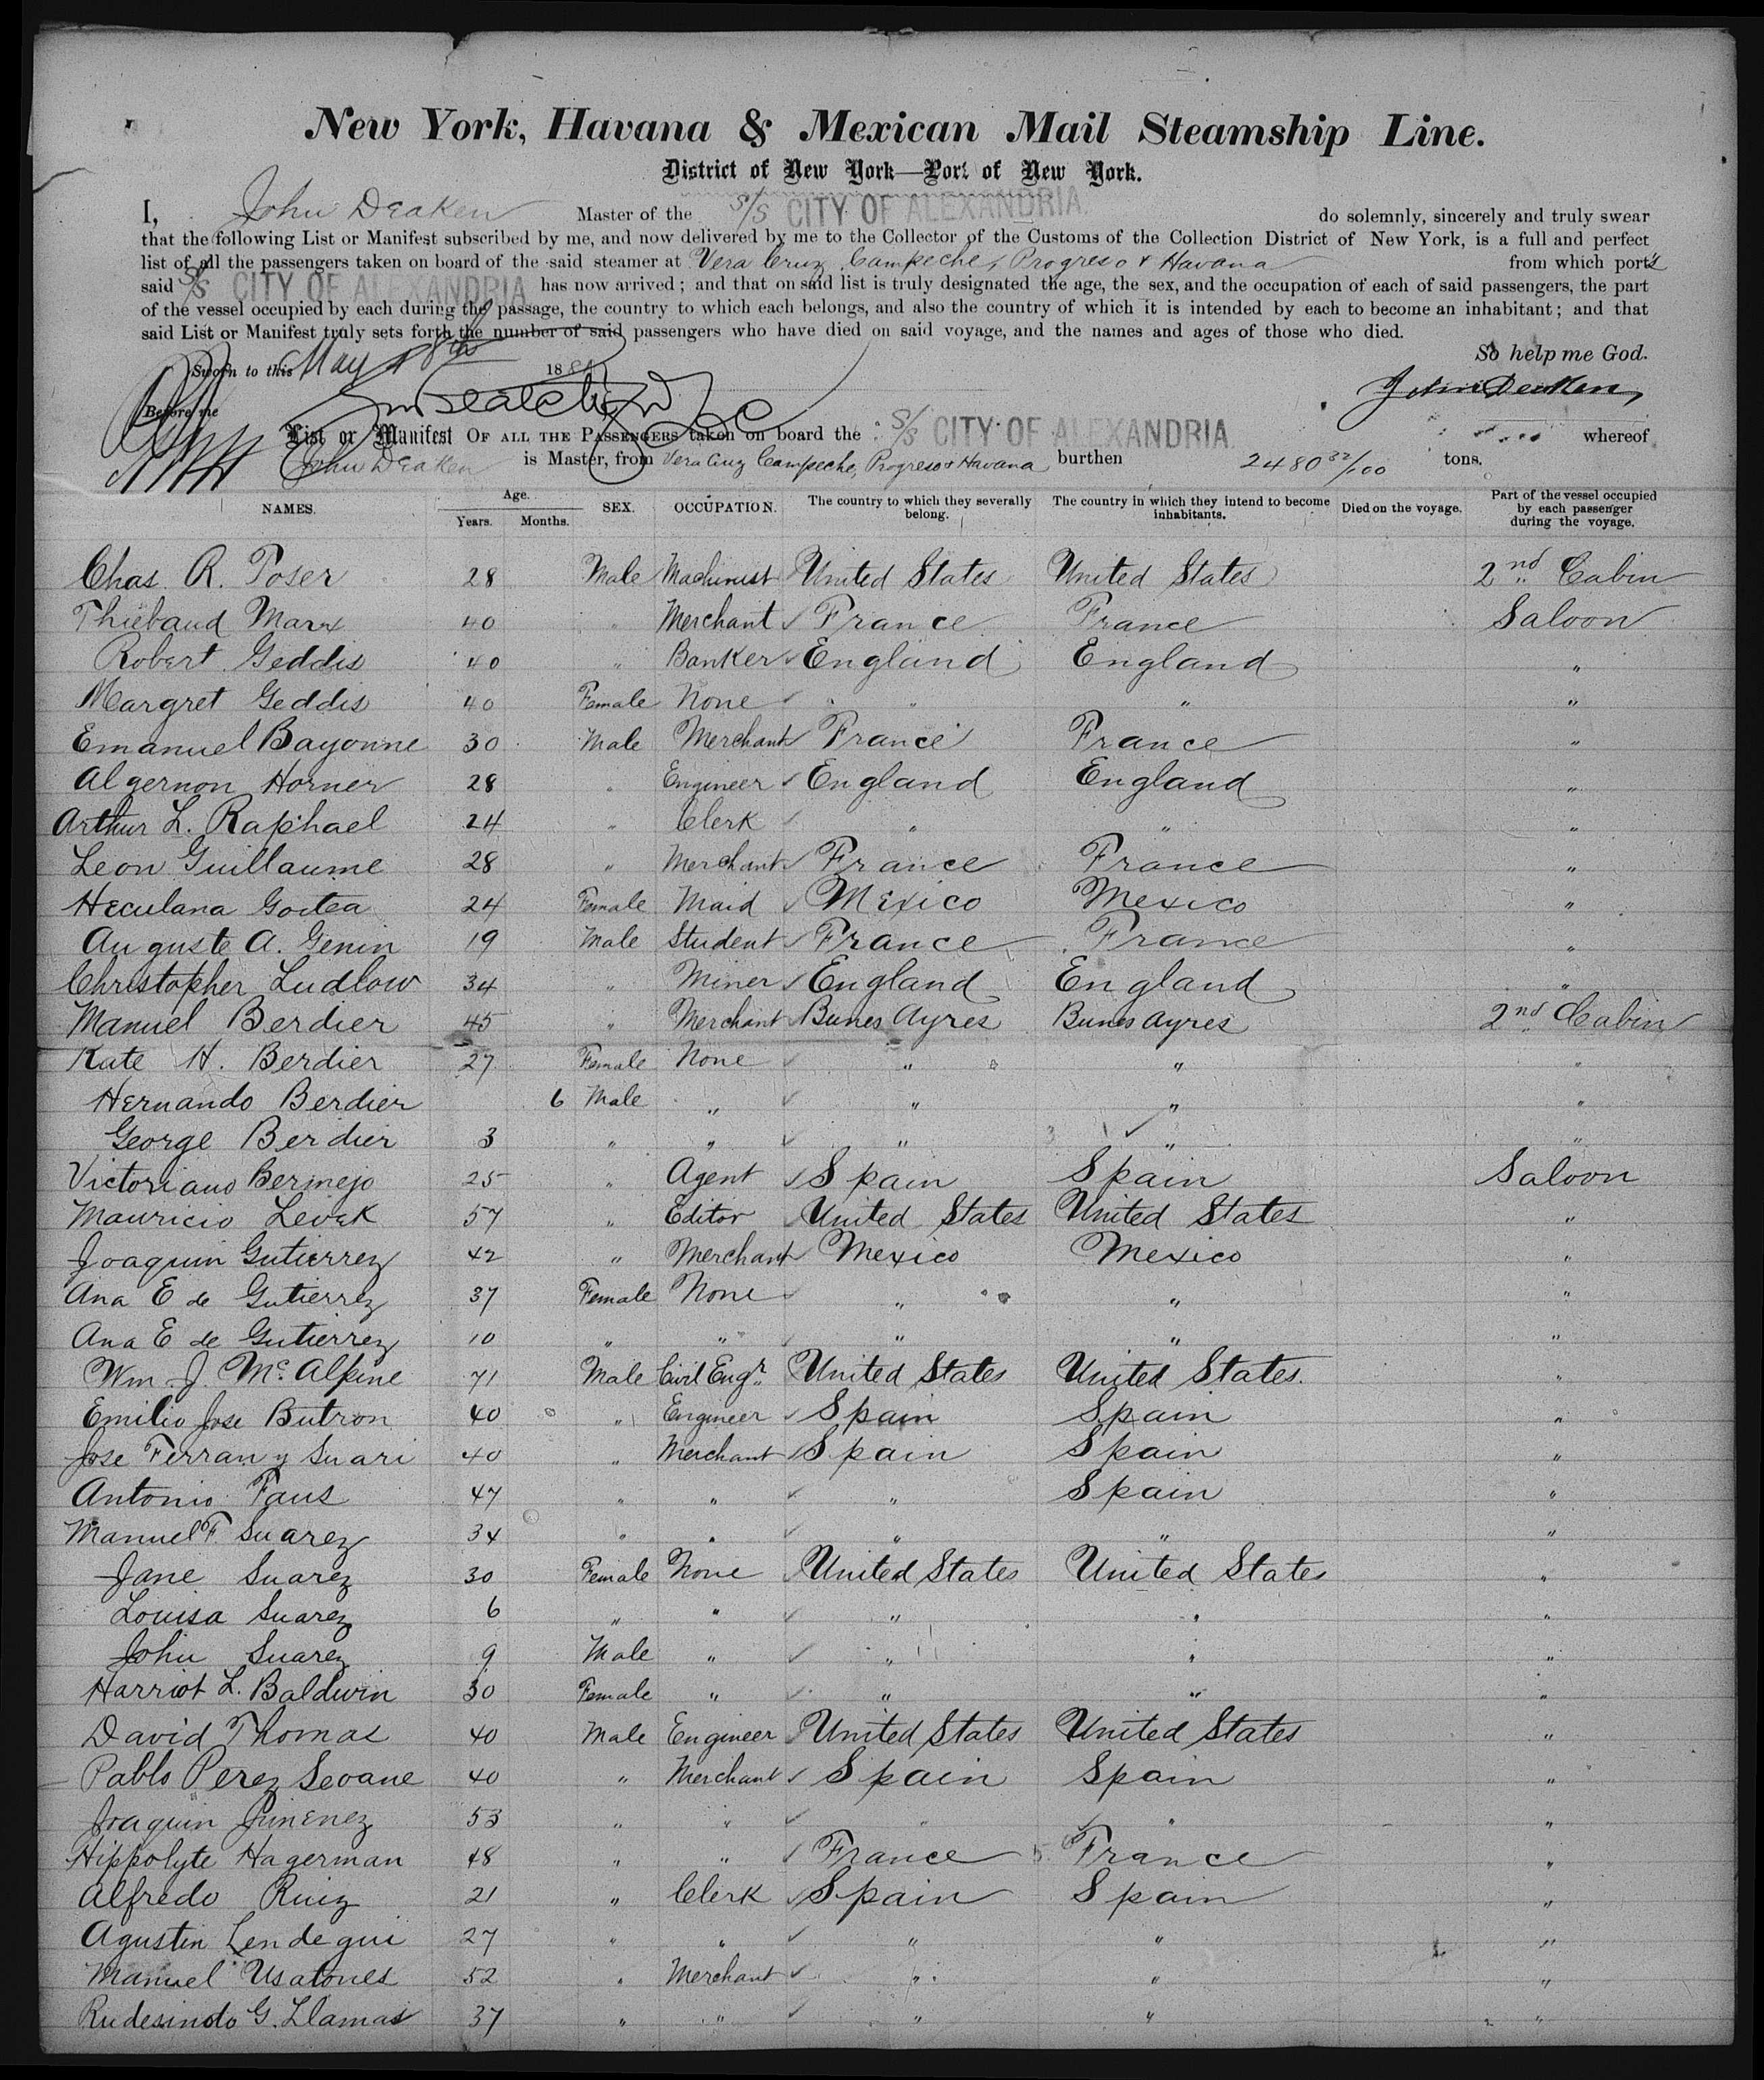 New York, Havana & Mexican Mail Steamship Line.
District of New York—Port of New York.
I, John Deaken Master of the S/S CITY OF ALEXANDRIA. do solemnly, sincerely and truly swear
that the following List or Manifest subscribed by me, and now delivered by me to the Collector of the Customs of the Collection District of New York, is a full and perfect
list of all the passengers taken on board of the said steamer at Vera Cruz, Campeche, Progreso & Havana from which ports
said S/S CITY OF ALEXANDRIA has now arrived; and that on said list is truly designated the age, the sex, and the occupation of each of said passengers, the part
of the vessel occupied by each during the passage, the country to which each belongs, and also the country of which it is intended by each to become an inhabitant; and that
said List or Manifest truly sets forth the number of said passengers who have died on said voyage, and the names and ages of those who died.
So help me God.
Sworn to this May 8th 188
John Deaken
Before me
List or Manifest OF ALL THE PASSENGERS taken on board the S/S CITY OF ALEXANDRIA whereof
John Deaken is Master, from Vera Cruz Campeche, Progreso & Havana burthen 2480 32/100 tons.
NAMES. Age. Years. Months. SEX. OCCUPATION. The country to which they severally belong. The country in which they intend to become inhabitants. Died on the voyage. Part of the vessel occupied by each passenger during the voyage.
Chas. R. Poser 28 Male Machinist United States United States 2nd Cabin
Thiebaud Marx 40 " Merchant France France Saloon
Robert Geddis 40 " Banker England England "
Margret Geddis 40 Female None " " "
Emanuel Bayonne 30 Male Merchant France France "
Algernon Horner 28 " Engineer England England "
Arthur L. Raphael 24 " Clerk " " "
Leon Guillaume 28 " Merchant France France "
Heculana Goitea 24 Female Maid Mexico Mexico "
Auguste A. Genin 19 Male Student France France "
Christopher Ludlow 34 " Miner England England "
Manuel Berdier 45 " Merchant Bunes Ayres Bunes Ayres 2nd Cabin
Kate H. Berdier 27 Female None " " "
Hernando Berdier 6 Male " " " "
George Berdier 3 " " " " "
Victoriano Bermejo 25 " Agent Spain Spain Saloon
Mauricio Levek 57 " Editor United States United States "
Joaquin Gutierrez 42 " Merchant Mexico Mexico "
Ana E de Gutierrez 37 Female None " " "
Ana E de Gutierrez 10 " " " " "
Wm J. Mc.Alpine 71 Male Civil Engr. United States United States. "
Emilio Jose Butron 40 " Engineer Spain Spain "
Jose Ferran y Suari 40 " Merchant Spain Spain "
Antonio Faus 47 " " " Spain "
Manuel F. Suarez 34 " " " " "
Jane Suarez 30 Female None United States United States "
Louisa Suarez 6 " " " " "
John Suarez 9 Male " " " "
Harriot L. Baldwin 30 Female " " " "
David Thomas 40 Male Engineer United States United States "
Pablo Perez Seoane 40 " Merchant Spain Spain "
Joaquin Jimenez 53 " " " " "
Hippolyte Hagerman 48 " " France France "
Alfredo Ruiz 21 " Clerk Spain Spain "
Agustin Lendegui 27 " " " " "
Manuel Usatones 52 " Merchant " " "
Rudesindo G. Llamas 37 " " " " "